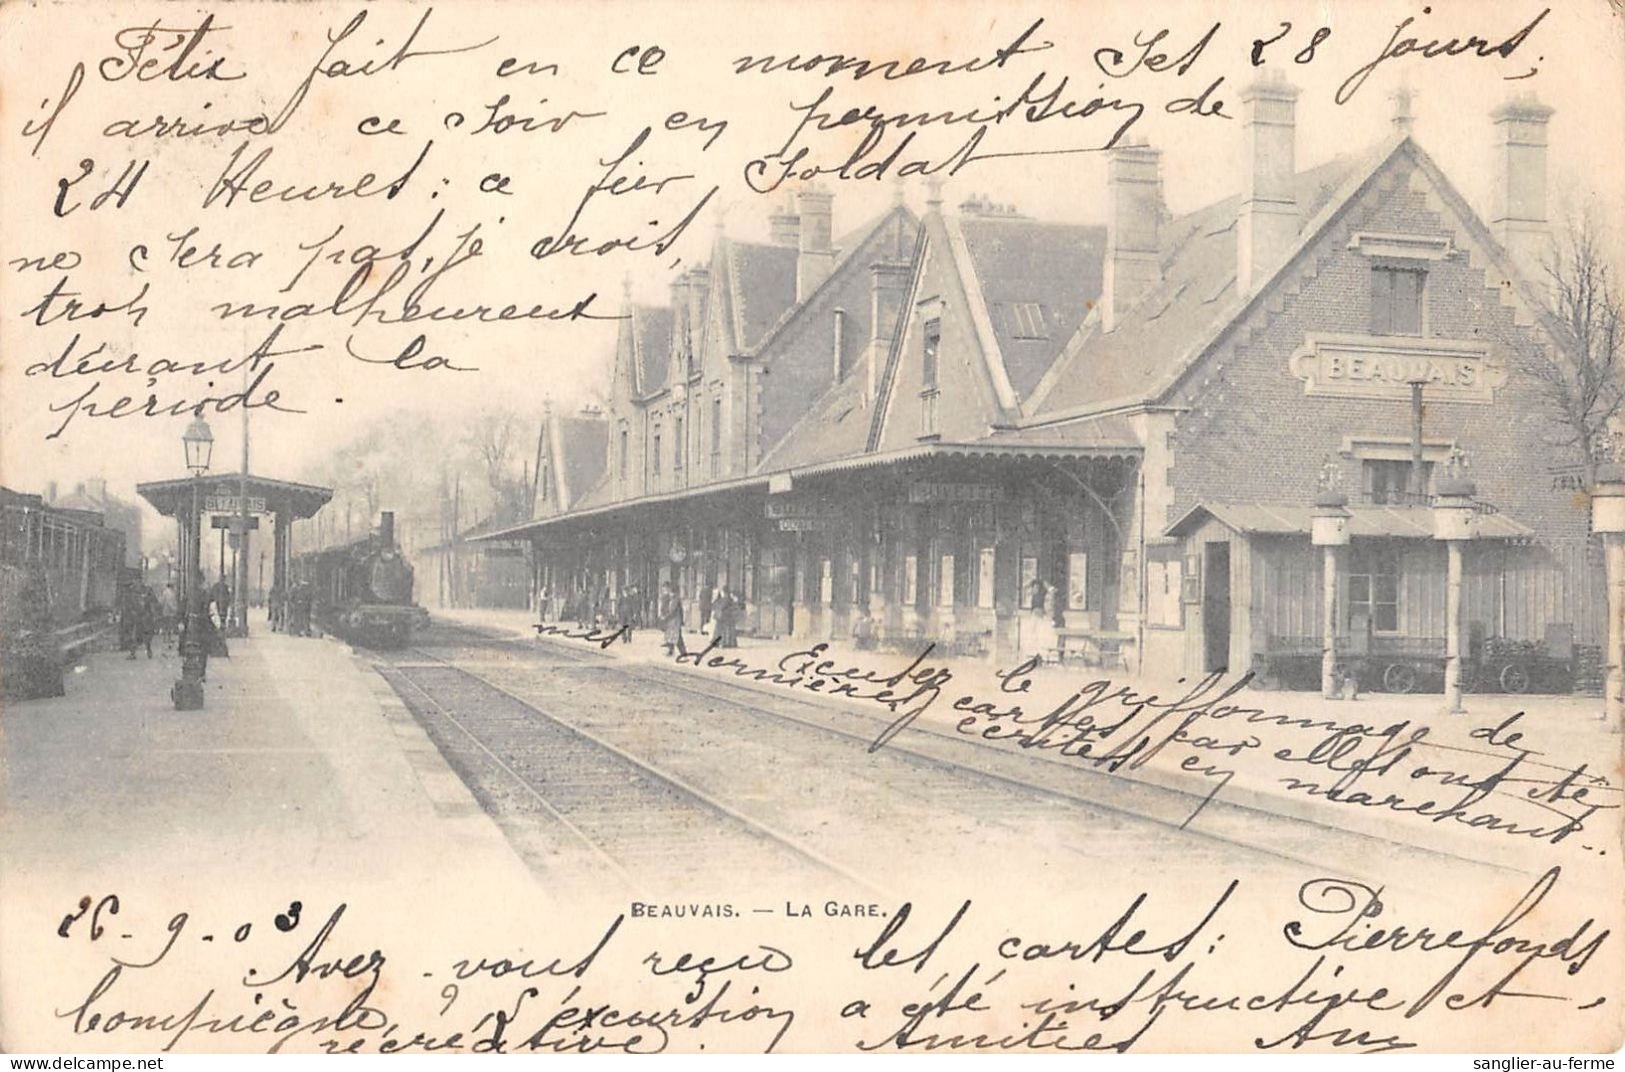 Félix fait en ce moment ses 28 jours,
il arrive ce soir en permission de
24 Heures : ce fier soldat
ne sera pas, je crois,
trop malheureux
durant la
période.
BEAUVAIS
BEAUVAIS
mes dernières cartes car elles ont été
Excusez le griffonnage de
écrites en marchant..
BEAUVAIS. — LA GARE.
26-9-03
Avez-vous reçu les cartes : Pierrefonds
Compiègne ? L'excursion a été instructive et
récréative. Amitiés
sanglier-au-ferme